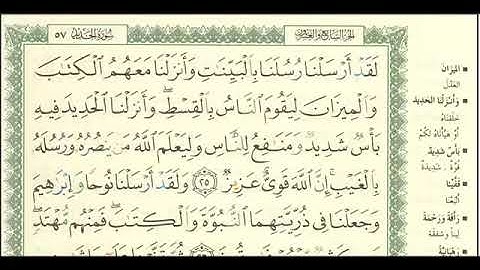 الجزء السابع والعشرون
سورة الحديد ٥٧
لَقَدْ أَرْسَلْنَا رُسُلَنَا بِالْبَيِّنَٰتِ وَأَنزَلْنَا مَعَهُمُ الْكِتَٰبَ
وَالْمِيزَانَ لِيَقُومَ النَّاسُ بِالْقِسْطِ ۖ وَأَنزَلْنَا الْحَدِيدَ فِيهِ
بَأْسٌ شَدِيدٌ وَمَنَٰفِعُ لِلنَّاسِ وَلِيَعْلَمَ اللَّهُ مَن يَنصُرُهُۥ وَرُسُلَهُۥ
بِالْغَيْبِ ۚ إِنَّ اللَّهَ قَوِيٌّ عَزِيزٌ ٢٥ وَلَقَدْ أَرْسَلْنَا نُوحًا وَإِبْرَٰهِيمَ
وَجَعَلْنَا فِي ذُرِّيَّتِهِمَا النُّبُوَّةَ وَالْكِتَٰبَ ۖ فَمِنْهُم مُّهْتَدٍ ۖ
الميزان
العدل
وأنزلنا الحديد
خلقناه
أو هيأناه لكم
بأس شديد
قوة شديدة
قفينا
رأفة ورحمة
لينا وشفقة
رهبانية